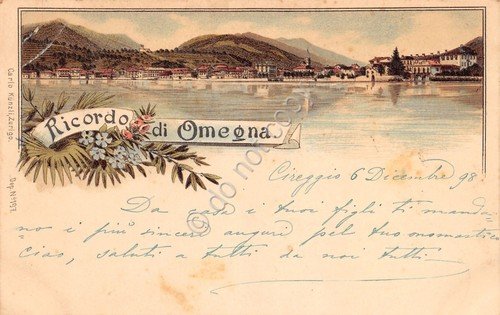 Ricordo di Omegna
Carlo Künzli, Zurigo.
Dep. No 1197.
Cireggio 6 Dicembre 98
Da casa i tuoi figli ti manda=
no i più sinceri auguri pel tuo onomastico
ciao, saluti a tutti da noi tutti